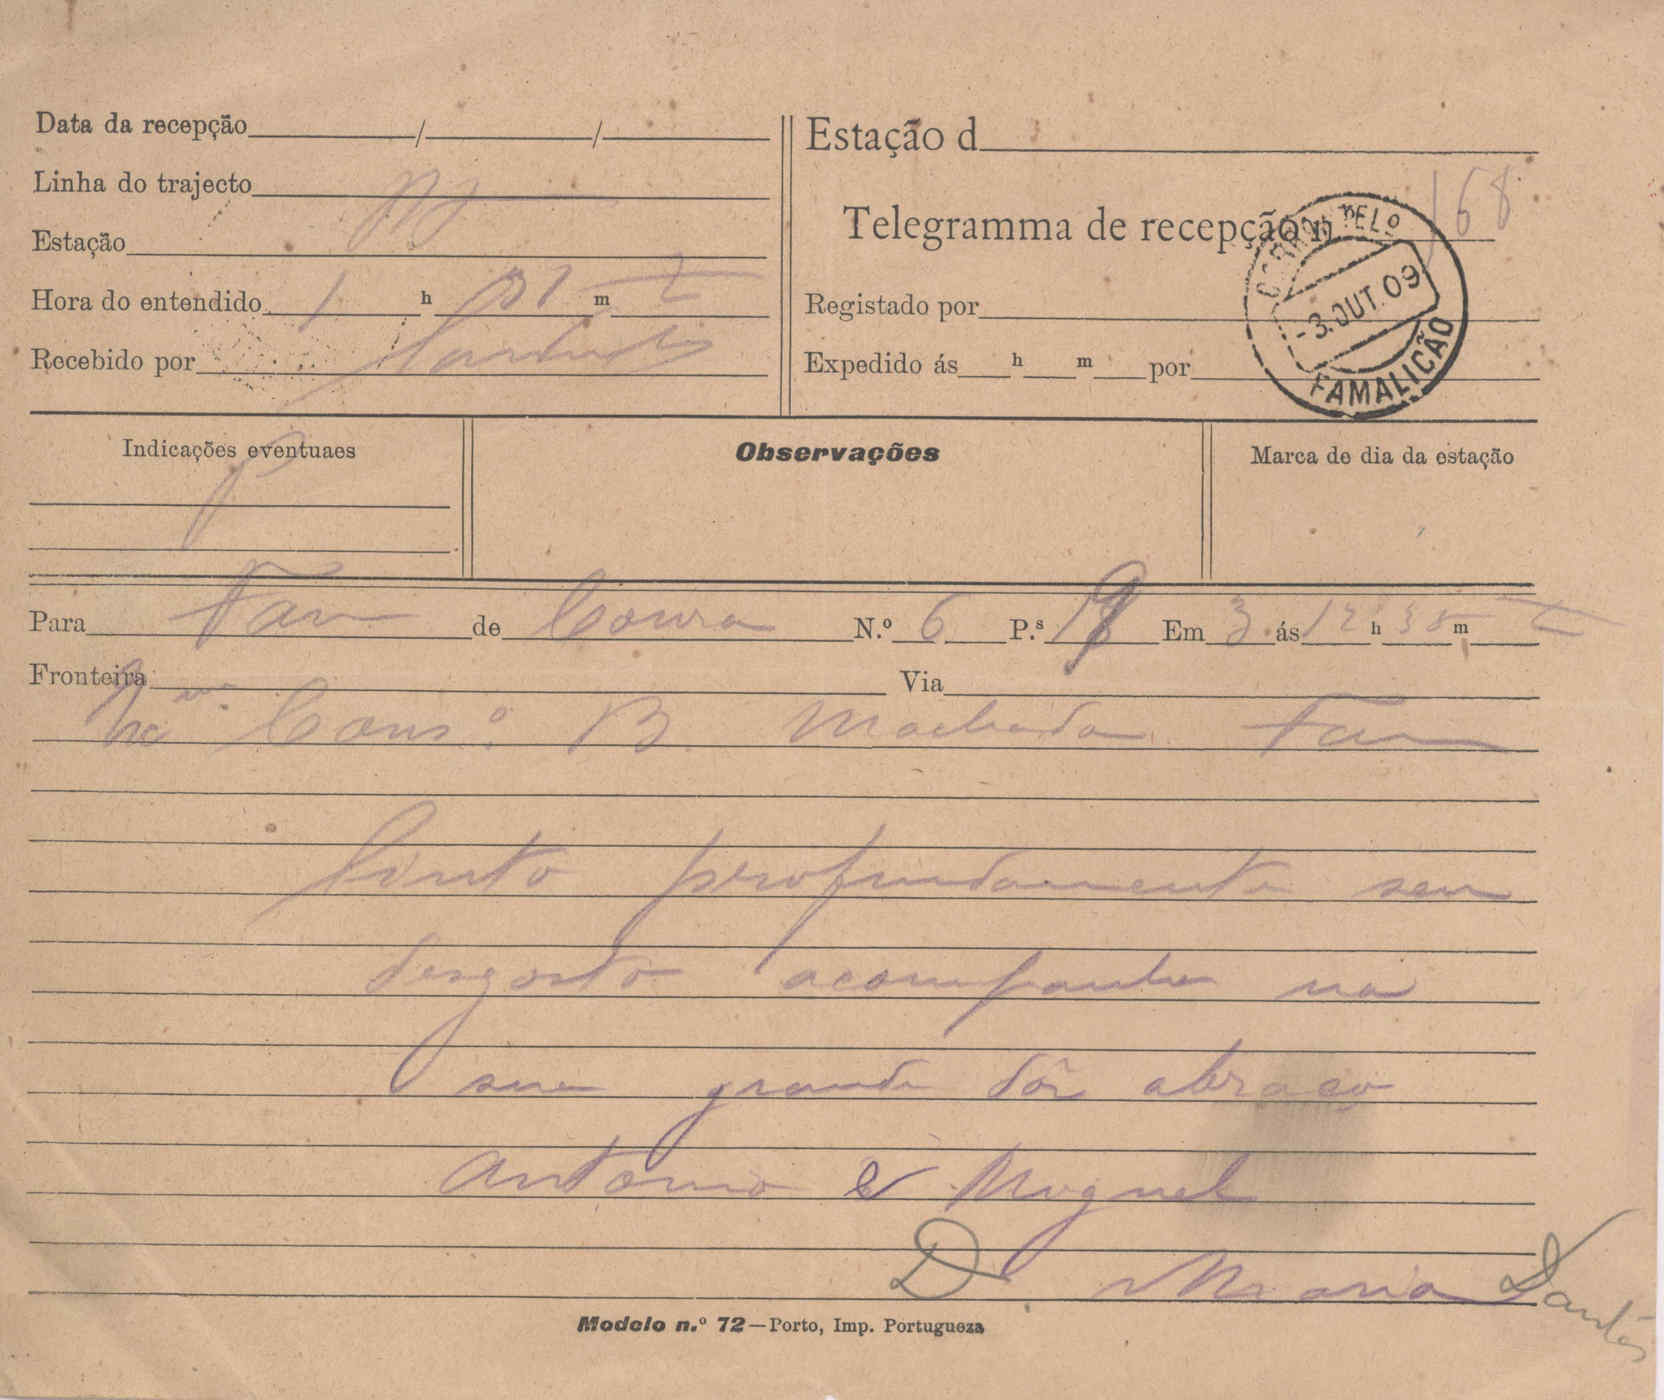 Data da recepção / /
Linha do trajecto
Estação
Hora do entendido 1 h 31 m t
Recebido por
Estação d
Telegramma de recepção n. 168
Registado por
Expedido ás h m por
CORREIO TELO
-3.OUT.09
FAMALICÃO
Indicações eventuaes
P
Observações
Marca de dia da estação
Para Fam de Coura N.º 6 P.ˢ 19 Em 3 ás 12 h 35 m t
Fronteira Via
Cons.º B. Machado Fam
Sinto profundamente seu
desgosto acompanho na
sua grande dôr abraço
Antonio e Miguel
D. Maria Dantas
Modelo n.º 72—Porto, Imp. Portugueza